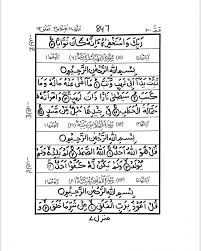 رَبِّكَ وَاسْتَغْفِرْهُ ؕ اِنَّهٗ كَانَ تَوَّابًا
بِسْمِ اللّٰهِ الرَّحْمٰنِ الرَّحِيْمِ
تَبَّتْ يَدَاۤ اَبِيْ لَهَبٍ وَّتَبَّ مَاۤ اَغْنٰى عَنْهُ مَالُهٗ وَمَا
كَسَبَ سَيَصْلٰى نَارًا ذَاتَ لَهَبٍ وَّامْرَاَتُهٗ
حَمَّالَةَ الْحَطَبِ فِيْ جِيْدِهَا حَبْلٌ مِّنْ مَّسَدٍ
بِسْمِ اللّٰهِ الرَّحْمٰنِ الرَّحِيْمِ
قُلْ هُوَ اللّٰهُ اَحَدٌ اَللّٰهُ الصَّمَدُ لَمْ يَلِدْ وَلَمْ
يُوْلَدْ وَلَمْ يَكُنْ لَّهٗ كُفُوًا اَحَدٌ
بِسْمِ اللّٰهِ الرَّحْمٰنِ الرَّحِيْمِ
قُلْ اَعُوْذُ بِرَبِّ الْفَلَقِ مِنْ شَرِّ مَا خَلَقَ وَ
منزل ٧